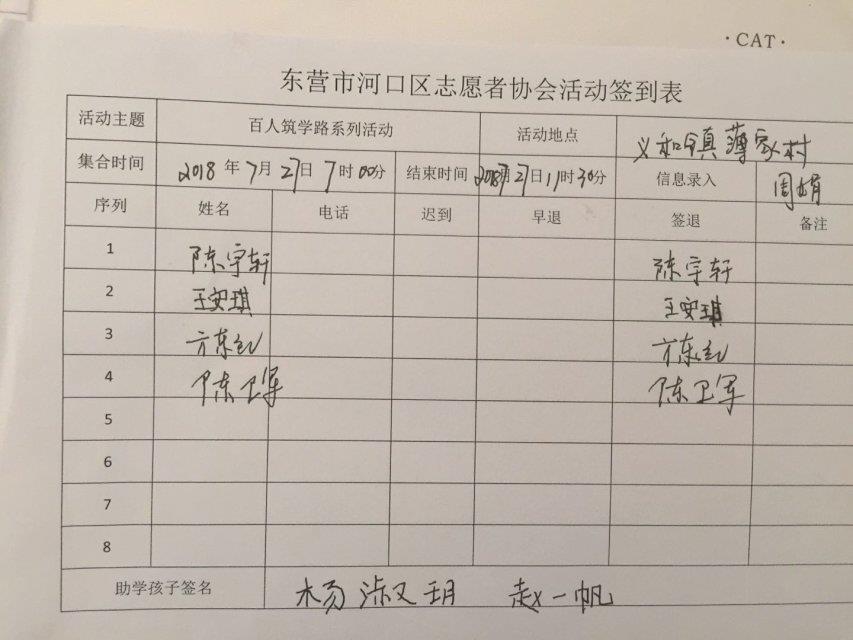 ·CAT·
东营市河口区志愿者协会活动签到表
活动主题 百人筑学路系列活动 活动地点 义和镇薄家村
集合时间 2018年7月27日7时00分 结束时间 2018 7 27日11时30分 信息录入 周娟
序列 姓名 电话 迟到 早退 签退 备注
1 陈宇轩 陈宇轩
2 王安琪 王安琪
3 方东红 方东红
4 陈卫军 陈卫军
5
6
7
8
助学孩子签名 杨淑玥 赵一帆